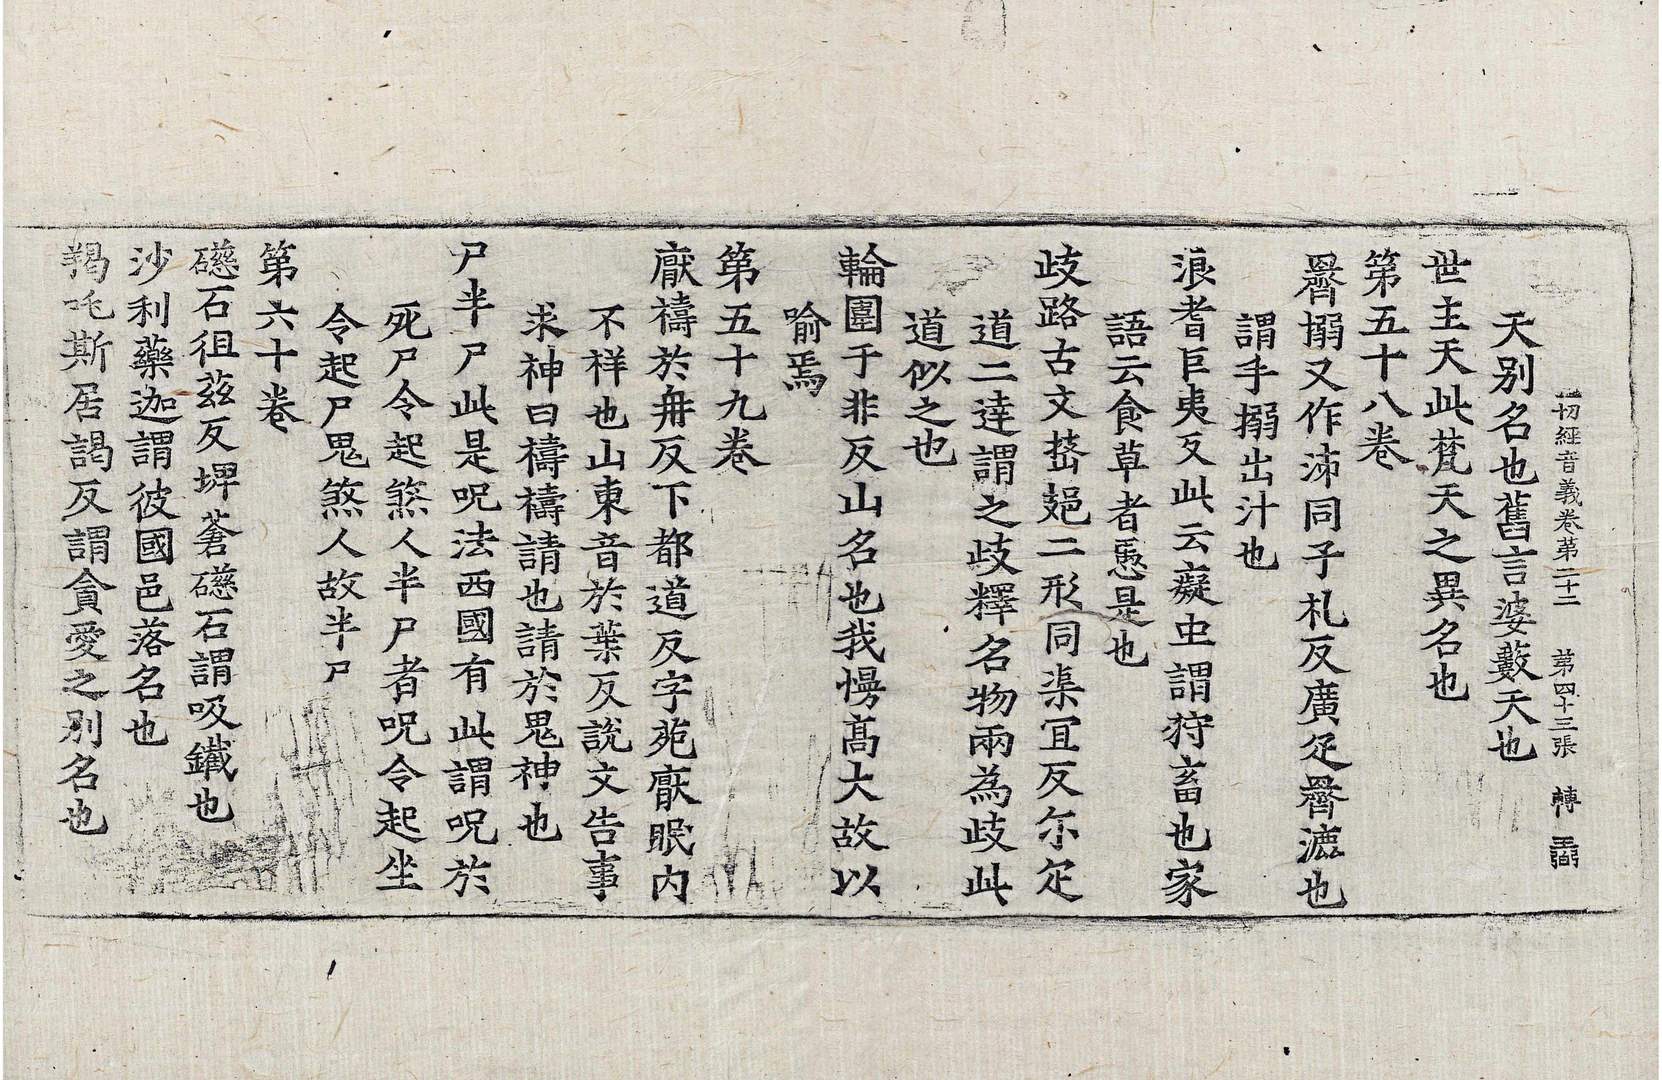 一切經音義卷第二十二 第四十三張 轉
天別名也舊言婆藪天也
世主天此梵天之異名也
第五十八卷
搦又作沛同子札反廣疋漉也
謂手搦出汁也
浪耆巨夷反此云癡虫謂狩畜也家
語云食草者愚是也
歧路古文𡺸𨙸二形同渠冝反尓疋
道二達謂之歧釋名物兩為歧此
道似之也
輪圍于非反山名也我慢髙大故以
喻焉
第五十九卷
厭禱於冉反下都道反字苑厭眠内
不祥也山東音於葉反說文告事
求神曰禱禱請也請於鬼神也
尸半尸此是呪法西國有此謂呪於
死尸令起煞人半尸者呪令起坐
令起尸鬼煞人故半尸
第六十卷
礠石徂茲反埤蒼礠石謂吸鐵也
沙利藥迦謂彼國邑落名也
羯吒斯居謁反謂貪愛之別名也